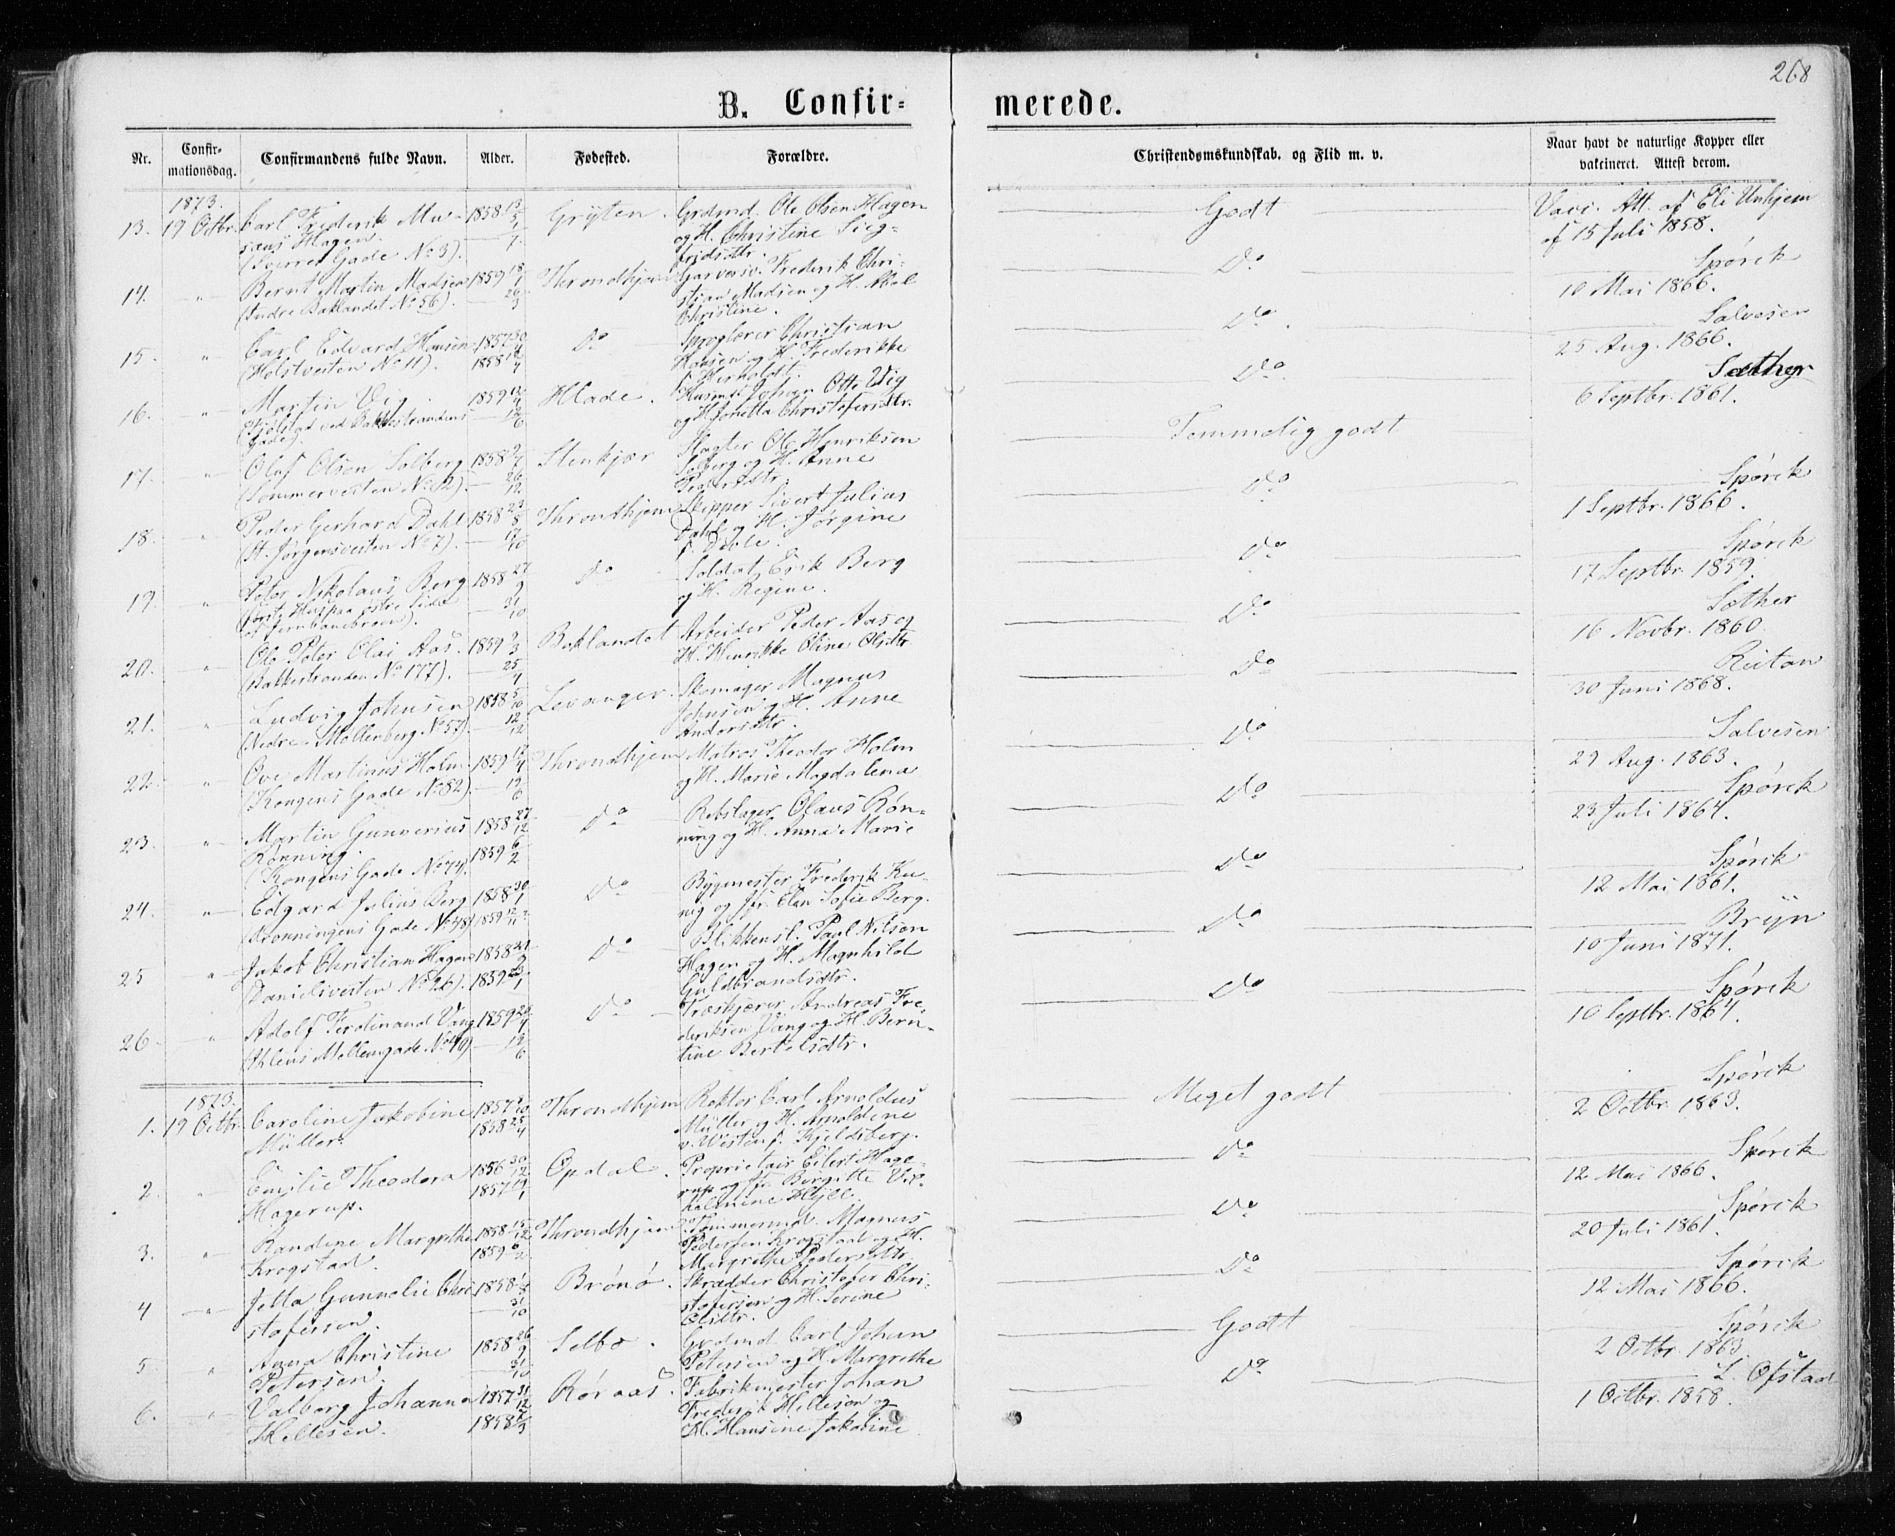 268
B. Confir=
merede.
Nr.
Confir-
mationsdag.
Confirmandens fulde Navn.
Alder.
Fødested.
Forældre.
Christendomskundskab, og Flid m. v.
Naar havt de naturlige Kopper eller
vakcineret. Attest derom.
1873.
13. 19 Octbr. Carl Frederik Mu- 1858 Gryten. Grdmd. Ole Olsen Hagen Godt Vacc. Att. af Eli Unhjem
Hagen. og H. Christine Sieg- af 15 Juli 1858.
Gade No 3). fridsdtr.
14. " Bernt Martin Madsen 1859 Throndhjem Frederik Chri- Do Spörck
(Indre Baklandet No 56). stian Madsen og H. 10 Mai 1866.
Christine.
15. " Carl Edvard Hansen 1857 Do Christian Do Salvesen
(Holstvesten No 11). 1858 Hansen og H. Frederikke 25 Aug. 1866.
16. " Martin Vig 1859 Hlade. Husmd. Johan Otto Vig Do Sæther
og H. Christofersdtr. 6 Septbr. 1861.
17. " Olaf Olsen Solberg 1858 Stenkjær Slagter Ole Henriksen Temmelig godt
(Sommervesten No 12). Solberg og H. Anne
18. " Peder Gerhard Dahl 1858 Throndhjem Skipper Sivert Julius Do Spörck
(St. Jörgensvesten No 7). Dahl og H. Jörgine 1 Septbr. 1866.
19. " Peter Nikolaus Berg 1858 Do Soldat Erik Berg Do Spörck
og H. Regine. 17 Septbr. 1859.
20. " Ole Peter Olai Aas. 1859 Baklandet Arbeider Peder Aas og Do Sæther
(Bakkestranden No 177). H. Henrikke Oline Olsdtr. 16 Novbr. 1860.
21. " Ludvig Johnsen 1858 Levanger. Skomager Magnus Do Reitan
(Nedre Möllenberg No 57). Johnsen og H. Anne 30 Juni 1868.
Andersdtr.
22. " Ove Martinus Holm 1859 Throndhjem Matros Theodor Holm Do Salvesen
(Kongens Gade No 82). og H. Marie Magdalena 29 Aug. 1863.
23. " Martin Gunverius 1858 Do Rebslager Olaus Rön- Do Spörck
Rönning. 1859 ning og H. Anna Marie 23 Juli 1864.
(Kongens Gade No 74).
24. " Edgard Julius Berg 1858 Do Bygmester Frederik Kö- Do Spörck
Dronningens Gade No 48) 1859 nig og Elen Sofie Berg. 12 Mai 1861.
25 " Jakob Christian Hagen 1858 Do Blikkensl. Paul Nilsen Do Bryn
(Danielsvesten No 26). 1859 Hagen og H. Magnhild 10 Juni 1871.
Guldbrandsdtr.
26. " Adolf Ferdinand Vang 1859 Do Andreas Fre- Do Spörck
Mellemgade No 49) deriksen Vang og H. Bern- 10 Septbr. 1864.
tine Bertelsdtr.
1873.
1. 19 Octbr. Caroline Jakobine 1857 Throndhjem Rektor Carl Arnoldus Meget godt Spörck
Müller. 1858 Müller og H. Arnoldine 2 Octbr. 1863.
v. Westen f. Kjeldsberg.
2. " Emilie Theodora 1856 Opdal. Proprietair Eilert Hage- Do Spörck
Hagerup. 1857 rup og Birgitte Vil- 12 Mai 1866.
3. " Randine Margrethe 1858 Throndhjem Tømmermd. Magnus Do Spörck
Krogstad. 1859 Pedersen Krogstad og H. 20 Juli 1861.
Margrethe Pedersdtr.
4 " Jetta Gunnelie Chri 1858 Brönö. Skrædder Christofer Chri- Do Spörck
stofersen. stofersen og H. Serine 12 Mai 1866.
Olsdtr.
5. " Anna Christine 1858 Selbo. Grdmd Carl Johan Godt Spörck
Petersen. Petersen og H. Margrethe 2 Octbr. 1863.
6. " Valborg Johanna 1857 Röraas. Fabrikmester Johan Do L. Ofstad
Hillesen. 1858 Frederik Hillesen og 1 Octbr. 1858.
H. Hansine Jakobine